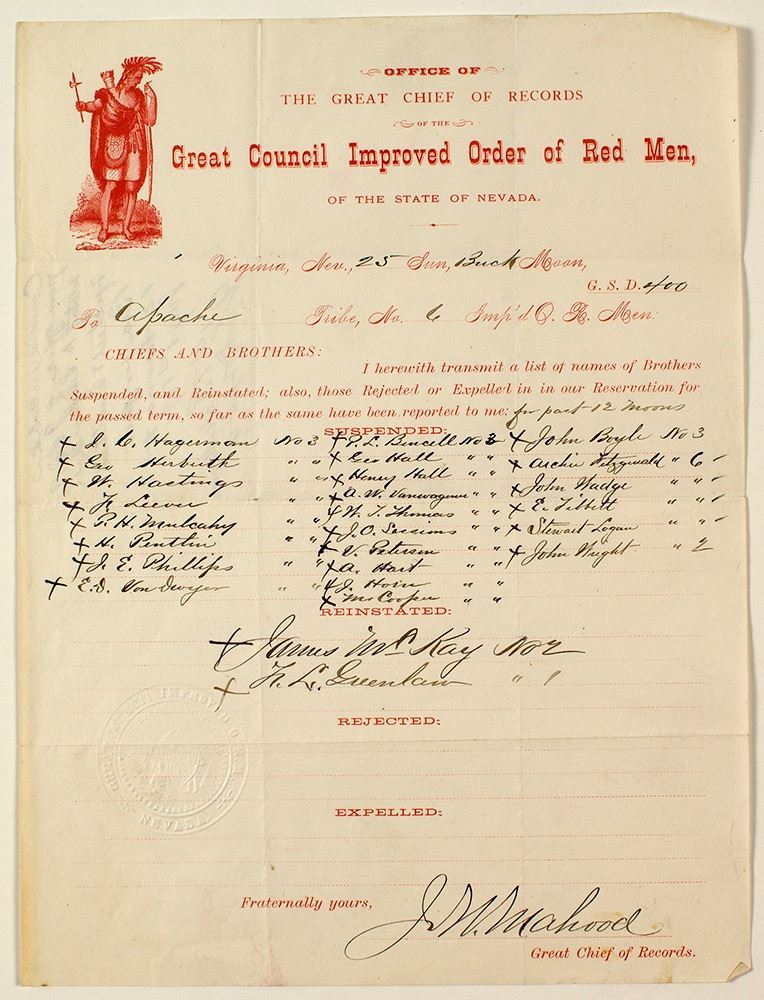 OFFICE OF
THE GREAT CHIEF OF RECORDS
OF THE
Great Council Improved Order of Red Men,
OF THE STATE OF NEVADA.
Virginia, Nev., 25 Sun, Buck Moon,
G. S. D. 400
To Apache Tribe, No. 6 Imp'd O. R. Men:
CHIEFS AND BROTHERS:
I herewith transmit a list of names of Brothers
Suspended, and Reinstated; also, those Rejected or Expelled in in our Reservation for
the passed term, so far as the same have been reported to me: for past 12 Moons
SUSPENDED:
x J. C. Hagerman No 3 x P. L. Bencell No 3 x John Boyle No 3
x Geo Herbuth " " x Geo Hall " " x Archie Fitzgerald " 6
x W. Hastings " " x Henry Hall " " x John Wadge " "
x " " x A. W. Vanwagener " " x E. Tibbett " "
x P. H. Mulcahy " " x W. T. Thomas " " x Stewart Logan " "
x H. Pentlin " " x J. O. Sessions " " x John Wright " 2
x J. E. Phillips " " x V. Petersen " "
x E. D. Von " " x A. Hart " "
x J. " "
x Cooper " "
REINSTATED:
x James McKay No 2
x L. Greenlaw " 1
REJECTED:
EXPELLED:
Fraternally yours,
J. W. Mahood
Great Chief of Records.
NEVADA